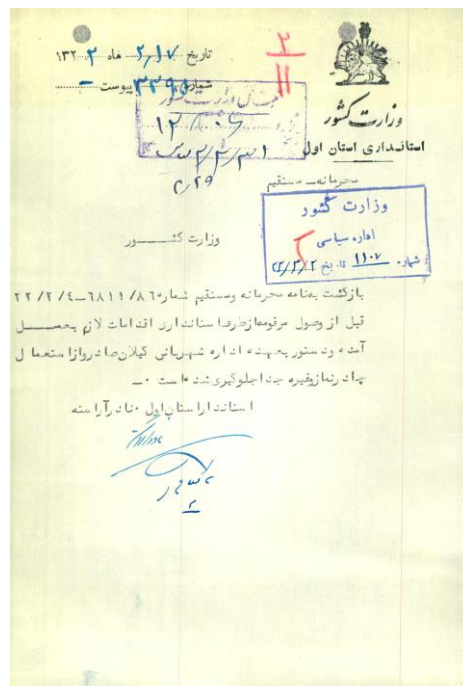 تاریخ ۲/۱۷ ماه ۲ ۱۳۲
شماره ۳۳۹۵ پیوست –
۲
۱۱
وزارت کشور
استانداری استان اول
وزارت کشور
محرمانه ـ مستقیم
وزارت کشور
اداره سیاسی
شماره ۱۱۰۷ تاریخ
وزارت کشور
بازگشت بنامه محرمانه ومستقیم شماره ۶۸۱۱/۸۶۰ ـ ۲۲/۲/۴
قبل از وصول مرقومه ازطرف استانداری اقدامات لازم بعمل
آمده ودستور بعهده اداره شهربانی گیلان صادرو از استعمال
چادرنماز وغیره جدا جلوگیری شده است ۰ ـ
استاندار استان اول ۰ نادر آراسته